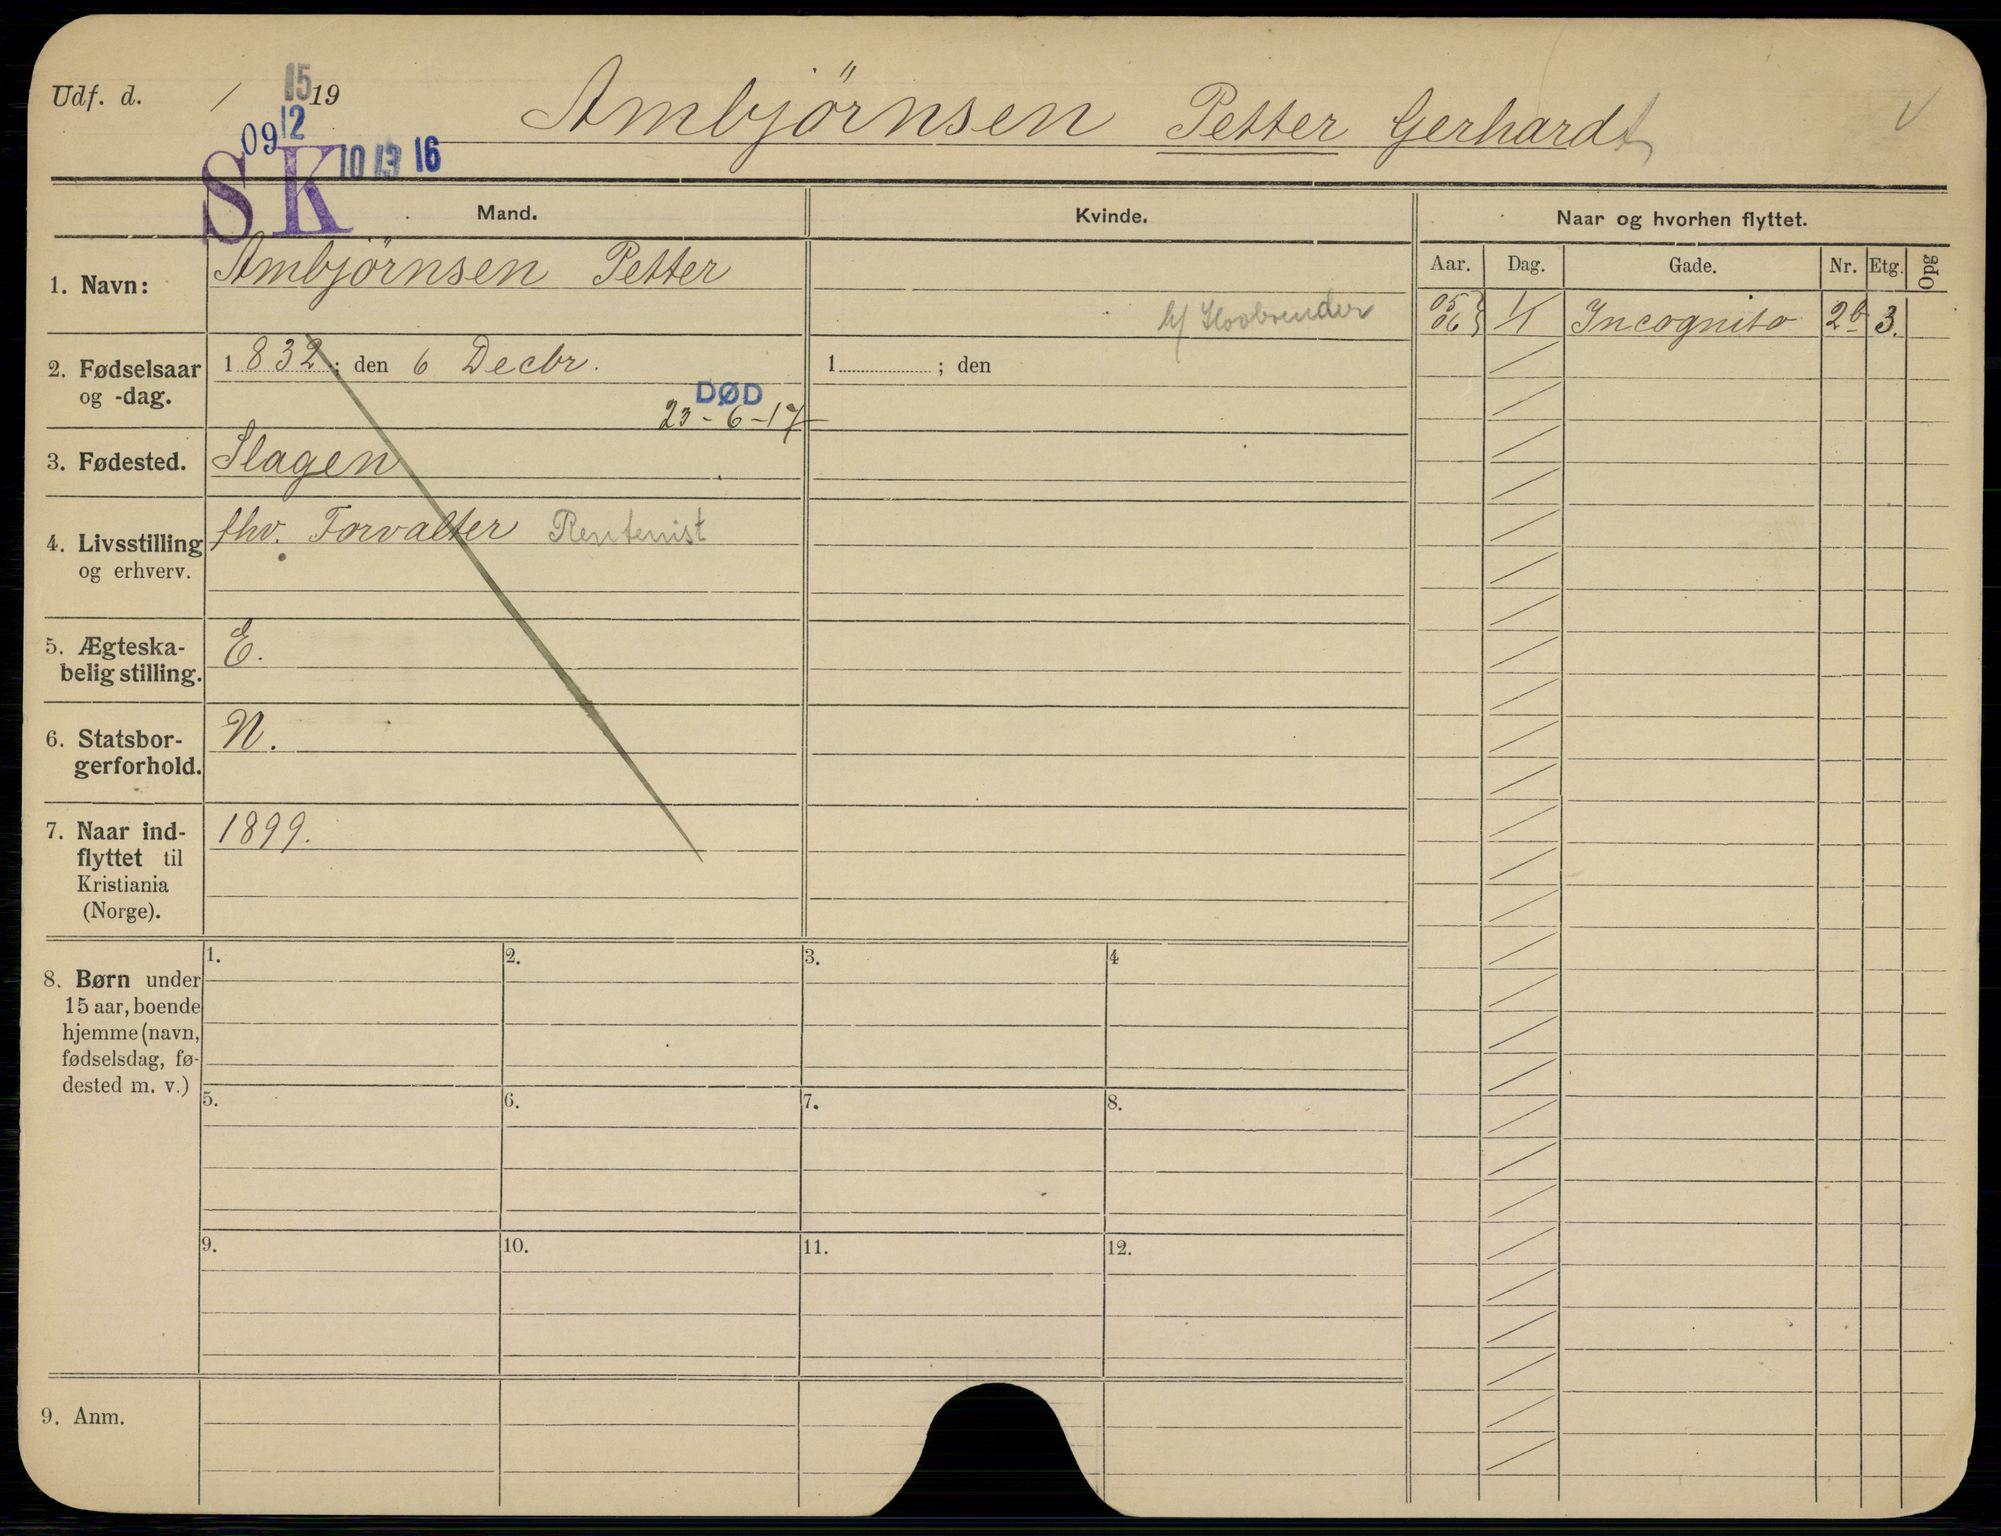 Udf. d. / 15 19
Ambjørnsen Petter Gerhardt
09 12
S K 10 13 16
Mand. Kvinde. Naar og hvorhen flyttet.
Aar. Dag. Gade. Nr. Etg. Opg
1. Navn: Ambjørnsen Petter
05
06 } 1/1 Incognito 2b 3.
2. Fødselsaar
og -dag.
1832; den 6 Decbr. 1 ; den
DØD
23-6-17
3. Fødested. Slagen
4. Livsstilling
og erhverv.
fhv. Forvalter Rentenist
5. Ægteska-
belig stilling.
E.
6. Statsbor-
gerforhold.
N.
7. Naar ind-
flyttet til
Kristiania
(Norge).
1899.
8. Børn under
15 aar, boende
hjemme (navn,
fødselsdag, fø-
dested m. v.)
1. 2. 3. 4
5. 6. 7. 8.
9. 10. 11. 12.
9. Anm.